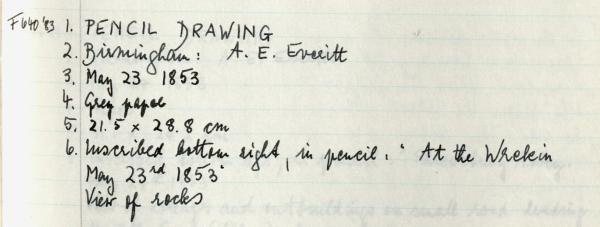 F640'83 1. PENCIL DRAWING
2. Birmingham: A. E. Everitt
3. May 23 1853
4. Grey paper
5. 21.5 x 28.8 cm
6. Inscribed bottom right, in pencil: "At the Wrekin
May 23rd 1853"
View of rocks
and outbuildings on small road leading